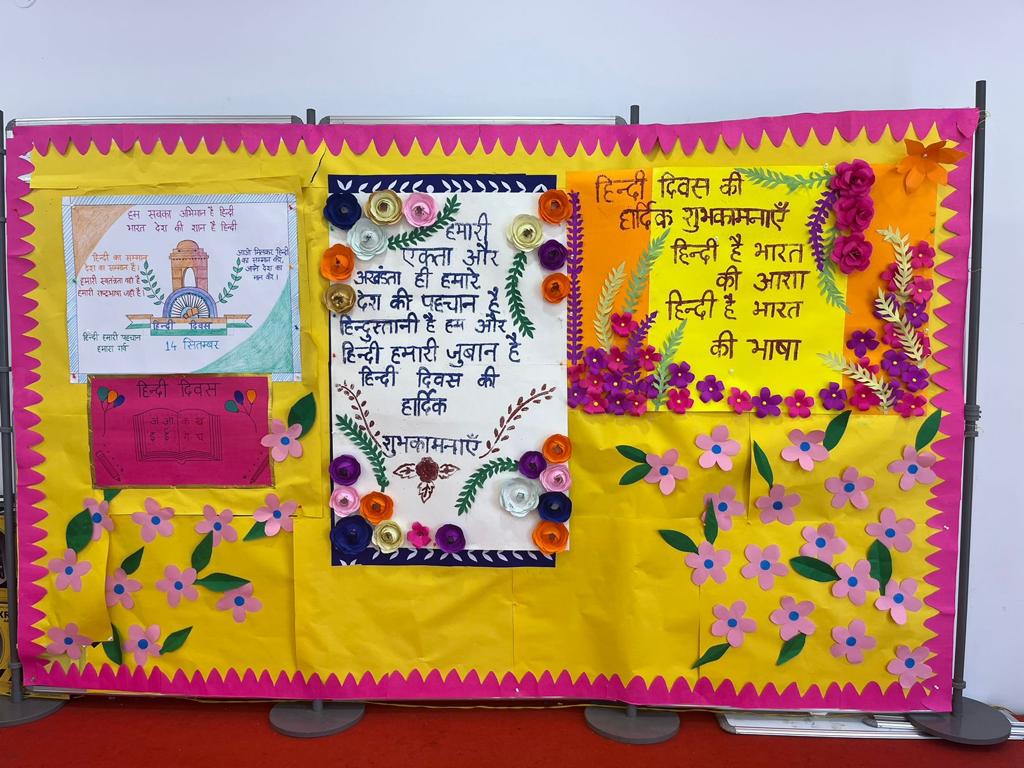 हम सबका अभिमान है हिन्दी
भारत देश की शान है हिन्दी
हिन्दी का सम्मान
देश का सम्मान है।
हमारी स्वतंत्रता वही है
हमारी राष्ट्रभाषा जहाँ है।
आओ मिलकर हिन्दी
का सम्मान करें,
अपने देश का
मान करें।
हिन्दी दिवस
हिन्दी हमारी पहचान
हमारा गर्व
14 सितम्बर
हिन्दी दिवस
अ आ क ख
इ ई ग घ
हमारी
एकता और
अखंडता ही हमारे
देश की पहचान है
हिन्दुस्तानी है हम और
हिन्दी हमारी जुबान है
हिन्दी दिवस की
हार्दिक
शुभकामनाएँ
हिन्दी दिवस की
हार्दिक शुभकामनाएँ
हिन्दी है भारत
की आशा
हिन्दी है भारत
की भाषा